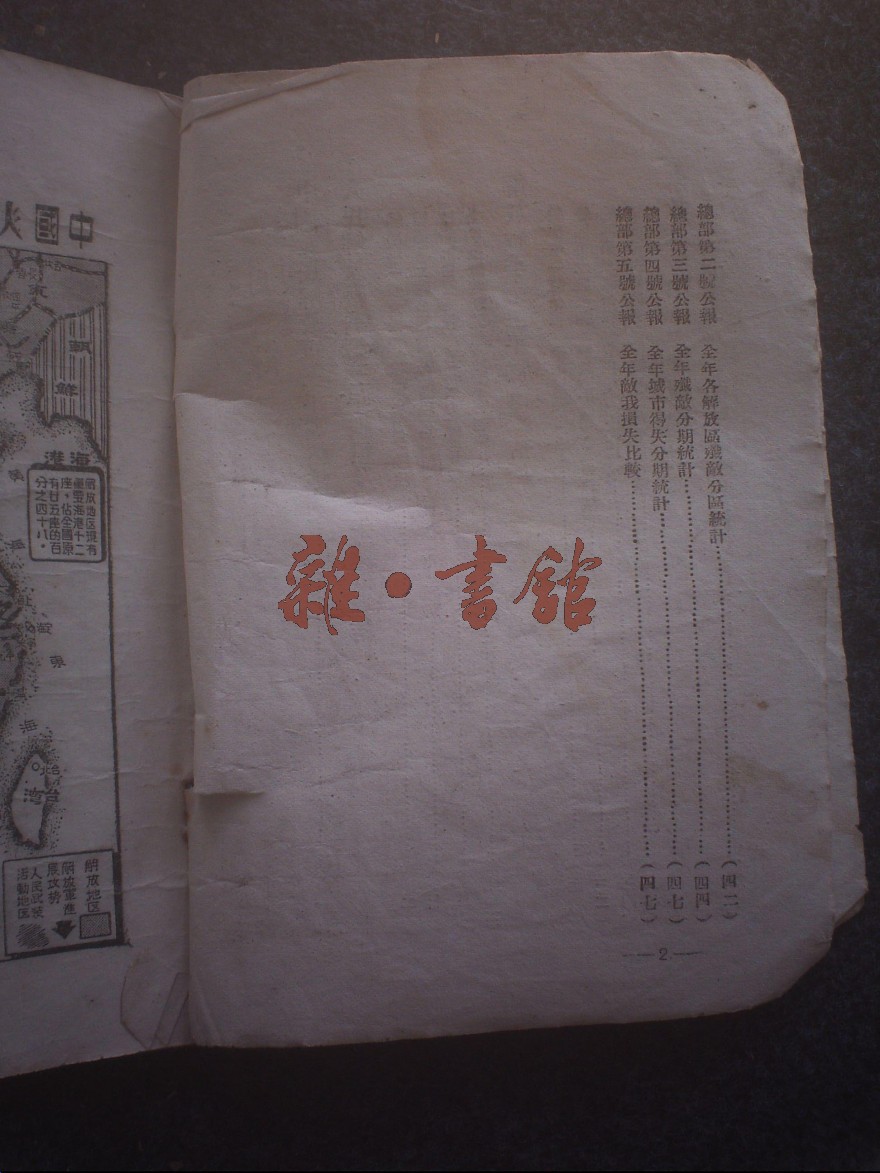 總部第二號公報 全年各解放區殲敵分區統計……(四二)
總部第三號公報 全年殲敵分期統計……(四四)
總部第四號公報 全年城市得失分期統計……(四七)
總部第五號公報 全年敵我損失比較……(四七)
—2—
雜•書館
中國
東
朝
鮮
海港
解放地区現有
重要海港十二
座,佔全國原
有廿五座的百
分之四十八。
東
海
台北
台灣
解放地区
解放軍進
展攻勢
人民武裝
活動地区